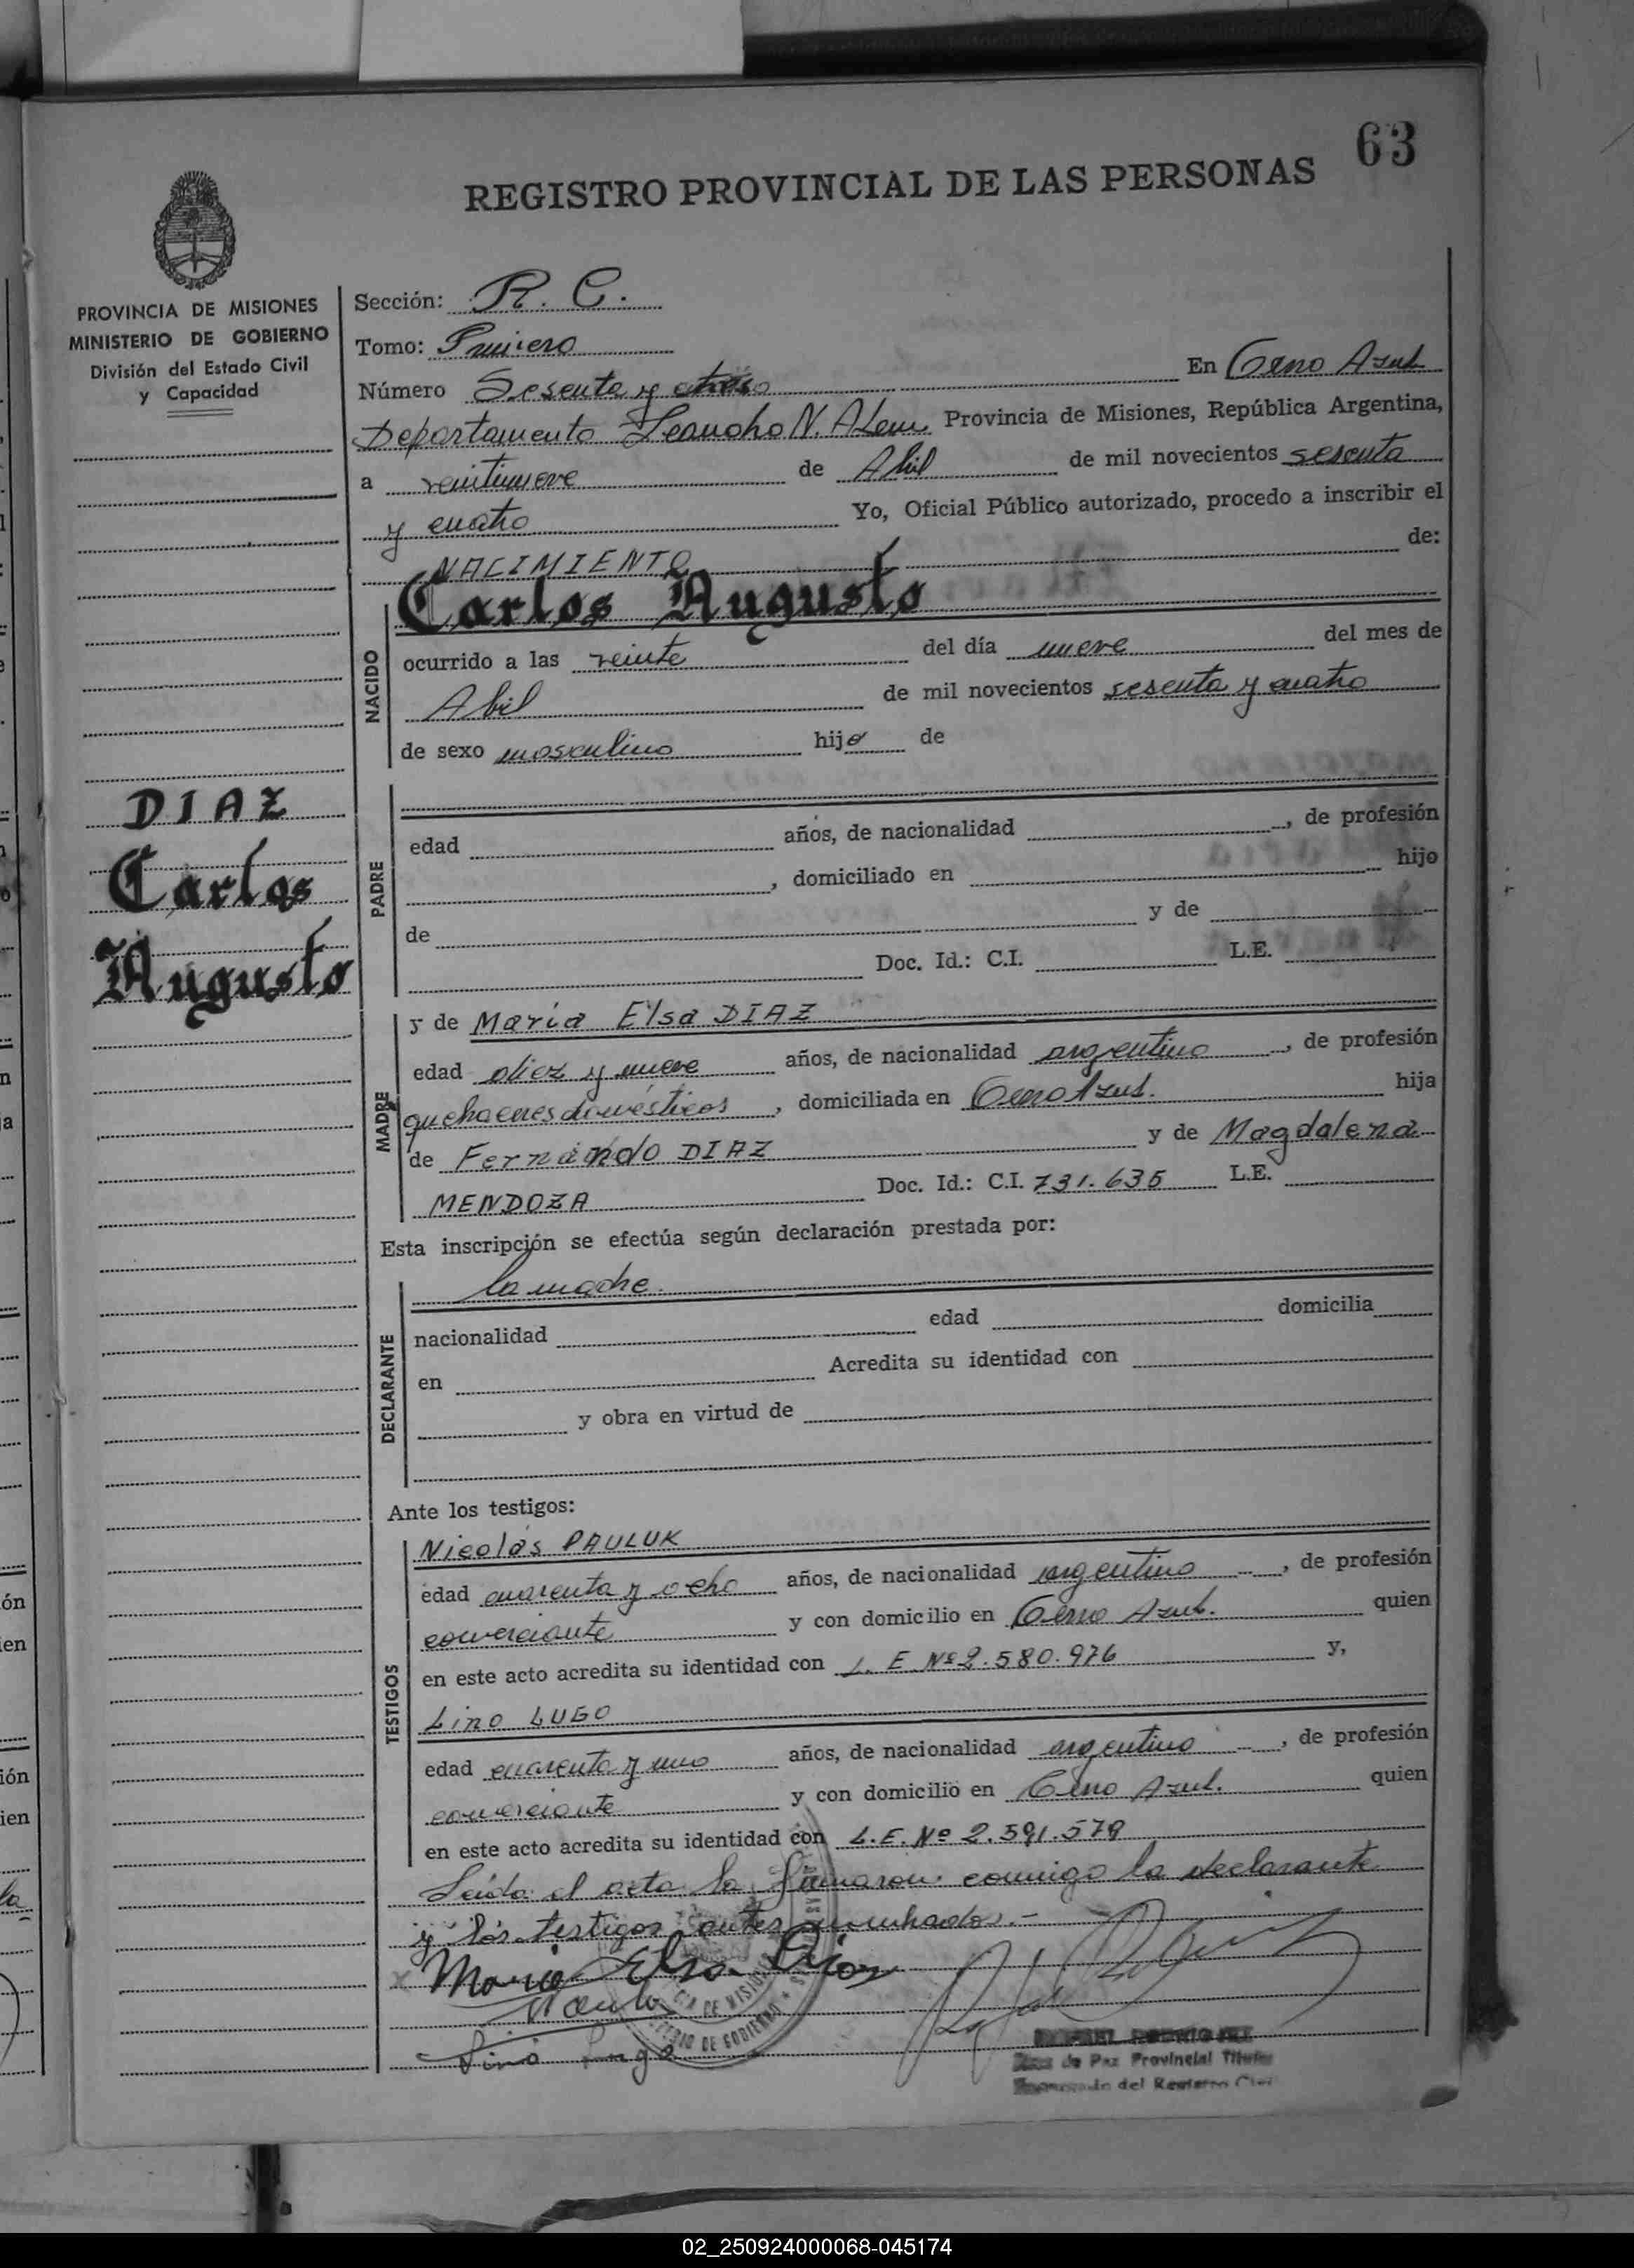 63
REGISTRO PROVINCIAL DE LAS PERSONAS
PROVINCIA DE MISIONES
MINISTERIO DE GOBIERNO
División del Estado Civil
y Capacidad
Sección: R. C.
Tomo: Primero
Número Sesenta y
En Cerro Azul
Departamento Leandro N. Alem Provincia de Misiones, República Argentina,
a veintinueve de Abril de mil novecientos sesenta
y cuatro Yo, Oficial Público autorizado, procedo a inscribir el
NACIMIENTO de:
NACIDO
Carlos Augusto
ocurrido a las veinte del día nueve del mes de
Abril de mil novecientos sesenta y cuatro
de sexo masculino hijo de
DIAZ
Carlos
Augusto
PADRE
edad años, de nacionalidad , de profesión
, domiciliado en hijo
de y de
Doc. Id.: C.I. L.E.
MADRE
y de María Elsa DIAZ
edad diez y nueve años, de nacionalidad argentina , de profesión
quehaceres domésticos , domiciliada en Cerro Azul. hija
de Fernando DIAZ y de Magdalena
MENDOZA Doc. Id.: C.I. 731.635 L.E.
Esta inscripción se efectúa según declaración prestada por:
DECLARANTE
la madre.
nacionalidad edad domicilia
en Acredita su identidad con
y obra en virtud de
Ante los testigos:
TESTIGOS
Nicolás PAULUK
edad cuarenta y ocho años, de nacionalidad argentino , de profesión
comerciante y con domicilio en Cerro Azul. quien
en este acto acredita su identidad con L. E. Nº 2.580.976 y,
Lino LUGO
edad cuarenta y uno años, de nacionalidad argentino , de profesión
comerciante y con domicilio en Cerro Azul. quien
en este acto acredita su identidad con L.E. Nº 2.591.579
Leída el acta la firmaron conmigo la declarante
y los testigos antes nombrados.-
Maria Elsa Díaz
Lino Lugo
Juez de Paz Provincial Titular
Encargado del Registro Civil
02_250924000068-045174